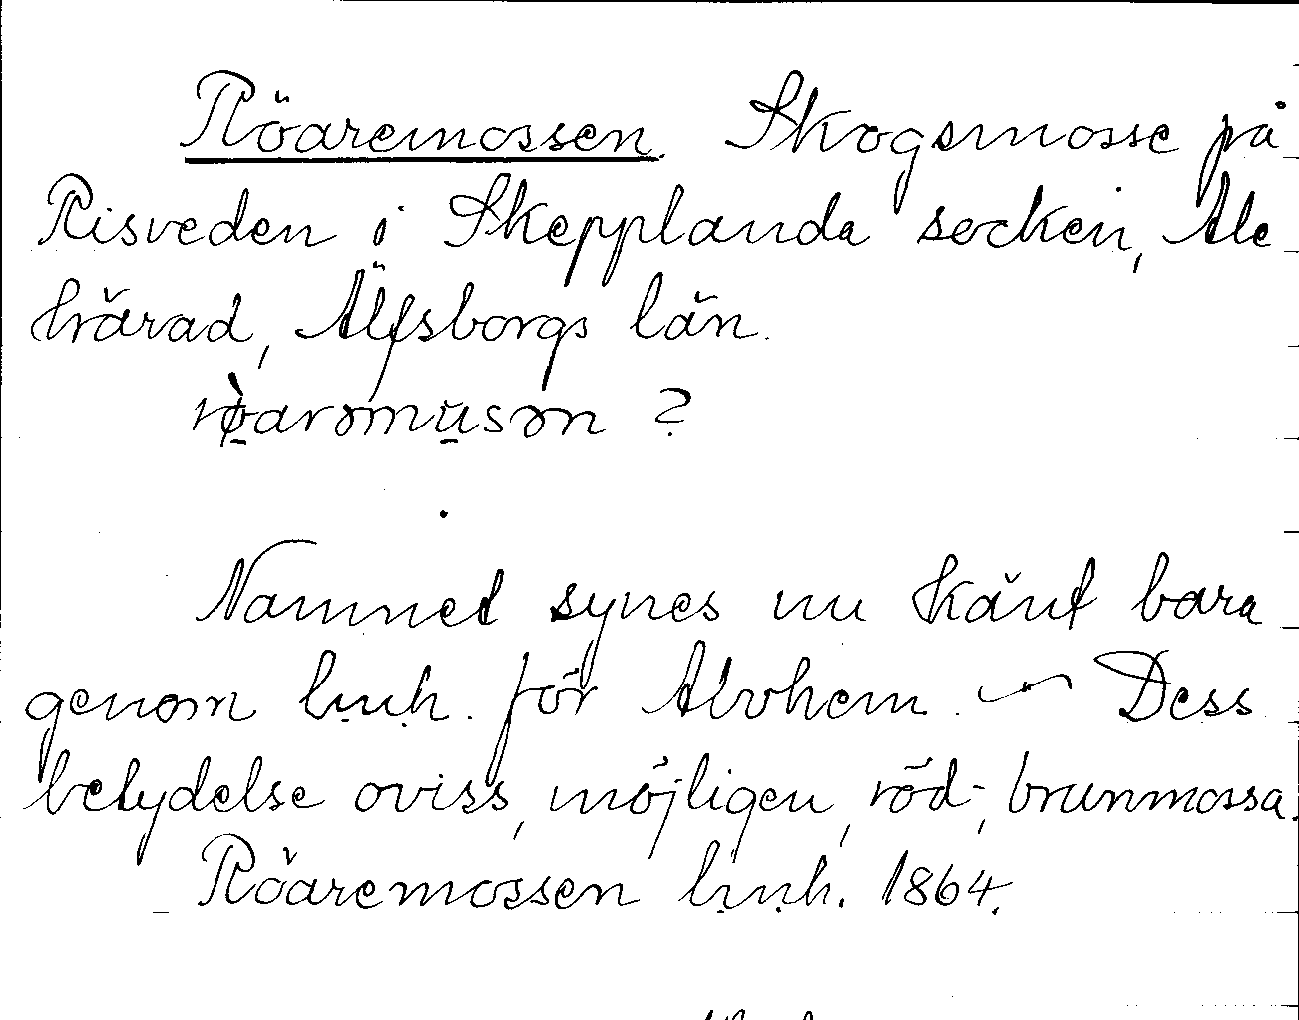 Röaremossen. Skogsmosse på
Risveden i Skepplanda socken, Ale
härad, Älfsborgs län.
rø̀arəmusən ?
Namnet synes nu känt bara
genom för Alvhem. — Dess
betydelse oviss, möjligen, röd-, brunmossa.
Röaremossen 1864.